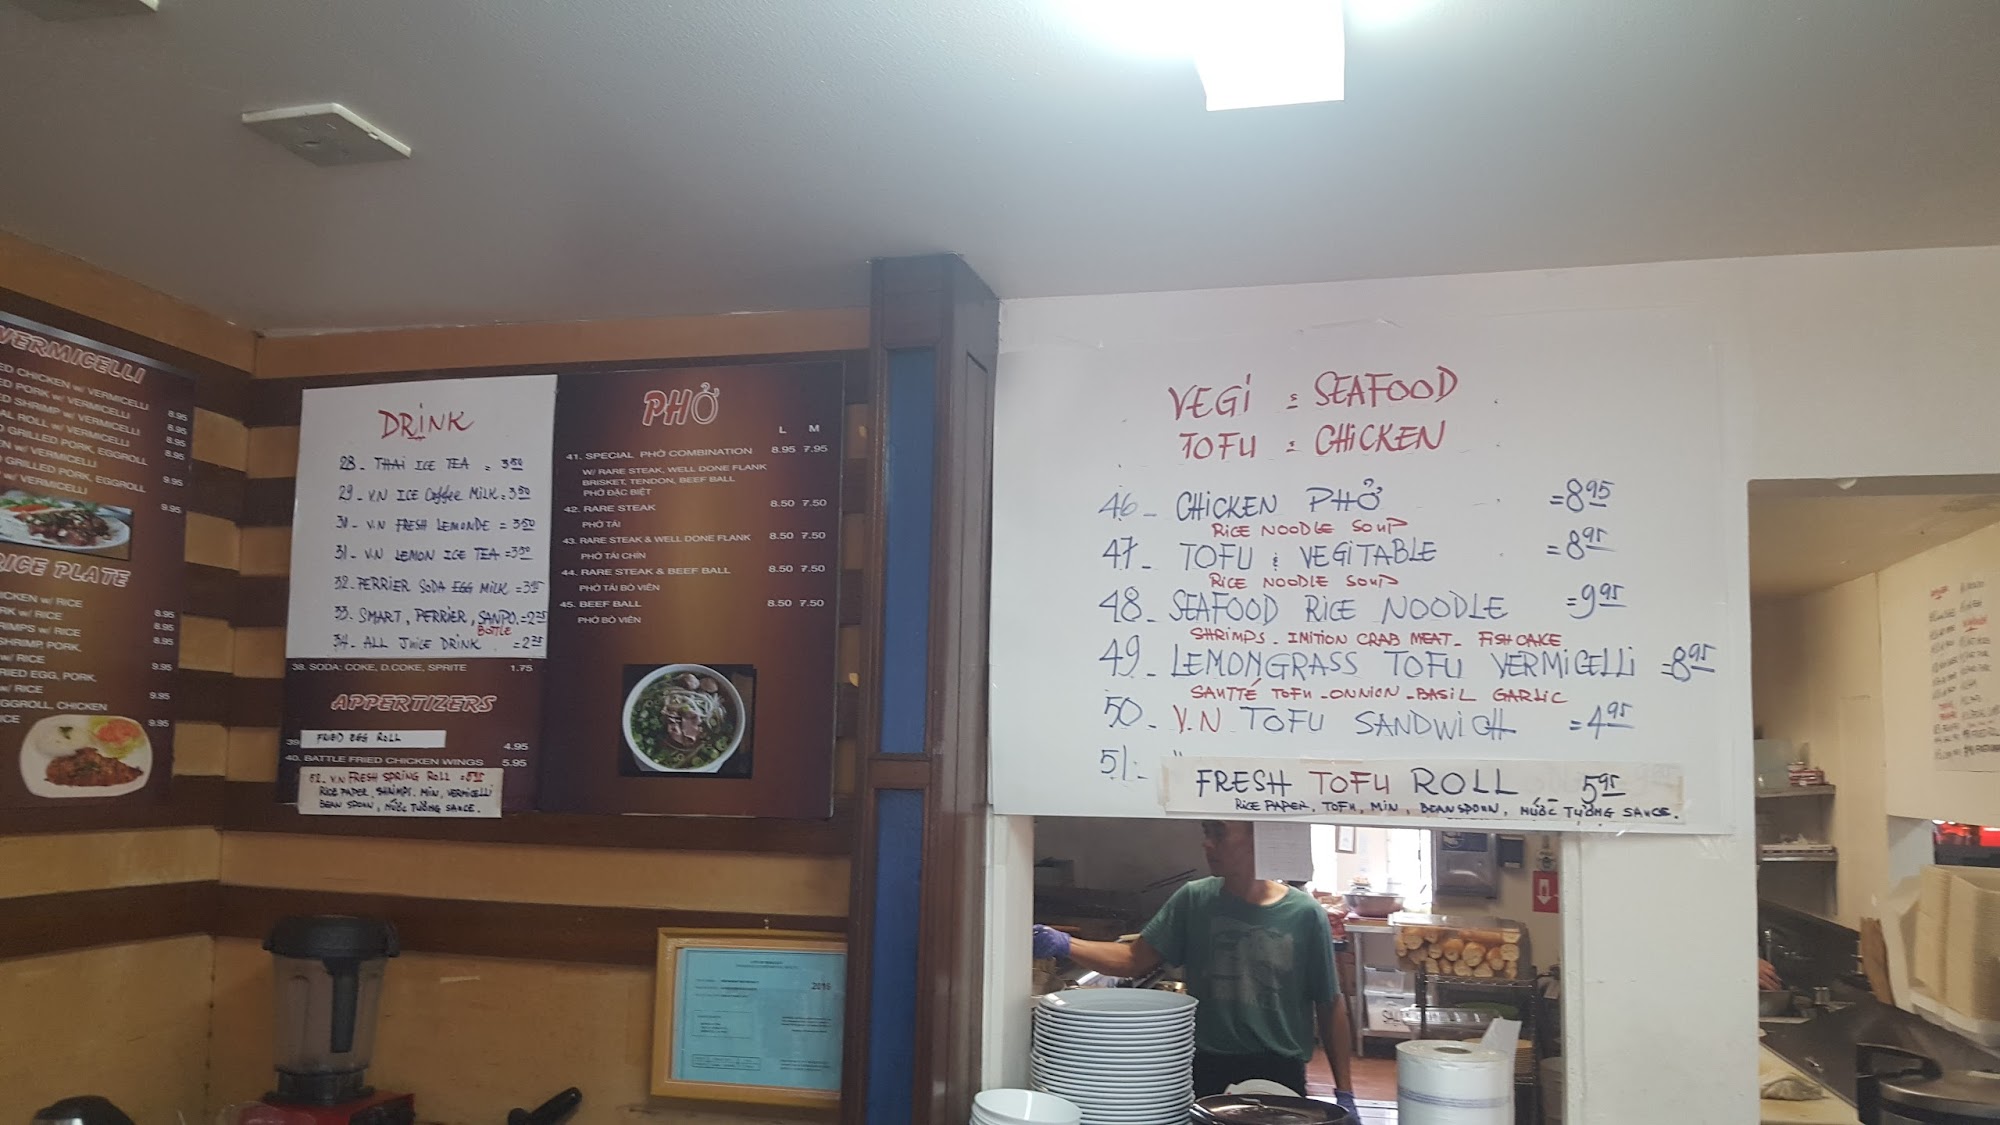 VERMICELLI
ED CHICKEN w/ VERMICELLI 8.95
ED PORK w/ VERMICELLI 8.95
ED SHRIMP w/ VERMICELLI 8.95
AL ROLL w/ VERMICELLI 8.95
D GRILLED PORK, EGGROLL
EN w/ VERMICELLI 9.95
GRILLED PORK, EGGROLL
w/ VERMICELLI 9.95
RICE PLATE
ICKEN w/ RICE 8.95
RK w/ RICE 8.95
RIMPS w/ RICE 8.95
SHRIMP, PORK,
w/ RICE 9.95
RIED EGG, PORK,
w/ RICE 9.95
GGROLL, CHICKEN
ICE 9.95
DRINK
28_ THAI ICE TEA = 3.50
29_ V.N ICE Coffee MILK = 3.50
30_ V.N FRESH LEMONDE = 3.50
31_ V.N LEMON ICE TEA = 3.50
32_ PERRIER SODA EGG MILK = 3.95
33_ SMART, PERRIER, SANPO. = 2.25
BOTTLE
34_ ALL JUICE DRINK = 2.25
38. SODA: COKE, D.COKE, SPRITE 1.75
APPERTIZERS
39 FRIED EGG ROLL 4.95
40. BATTLE FRIED CHICKEN WINGS 5.95
52. V.N FRESH SPRING ROLL = 5.95
RICE PAPER, SHRIMPS. MIN, VERMICELLI
BEAN SPOUN, NƯỚC TƯỜNG SAUCE.
PHỞ
L M
41. SPECIAL PHỞ COMBINATION 8.95 7.95
W/ RARE STEAK, WELL DONE FLANK
BRISKET, TENDON, BEEF BALL
PHỞ ĐẶC BIỆT
42. RARE STEAK 8.50 7.50
PHỞ TÁI
43. RARE STEAK & WELL DONE FLANK 8.50 7.50
PHỞ TÁI CHÍN
44. RARE STEAK & BEEF BALL 8.50 7.50
PHỞ TÁI BÒ VIÊN
45. BEEF BALL 8.50 7.50
PHỞ BÒ VIÊN
2016
VEGI : SEAFOOD
TOFU : CHICKEN
46_ CHICKEN PHỞ = 8.95
RICE NOODLE SOUP
47_ TOFU & VEGITABLE = 8.95
RICE NOODLE SOUP
48_ SEAFOOD RICE NOODLE = 9.95
SHRIMPS _ IMITION CRAB MEAT _ FISH CAKE
49_ LEMONGRASS TOFU VERMICELLI = 8.95
SAUTTÉ TOFU - ONNION - BASIL GARLIC
50_ V.N TOFU SANDWICH = 4.95
51- "
FRESH TOFU ROLL _ 5.95
RICE PAPER, TOFU, MIN, BEAN SPOUN, NƯỚC TƯỜNG SAUCE.